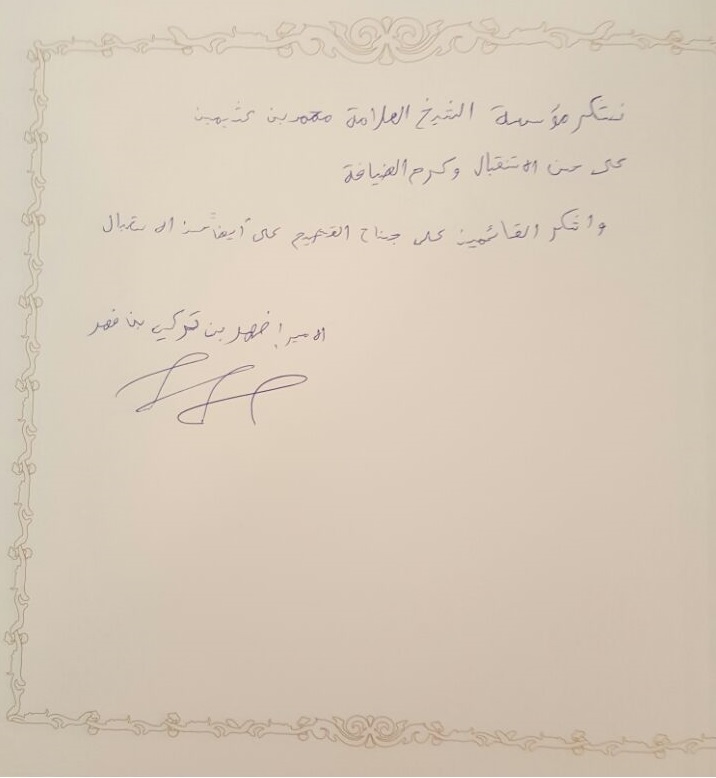 نشكر مؤسسة الشيخ العلامة محمد بن عثيمين
على حسن الاستقبال وكرم الضيافة
واشكر القائمين على جناح القصيم على أيضاً حسن الاستقبال
الامير / فهد بن تركي بن فهد